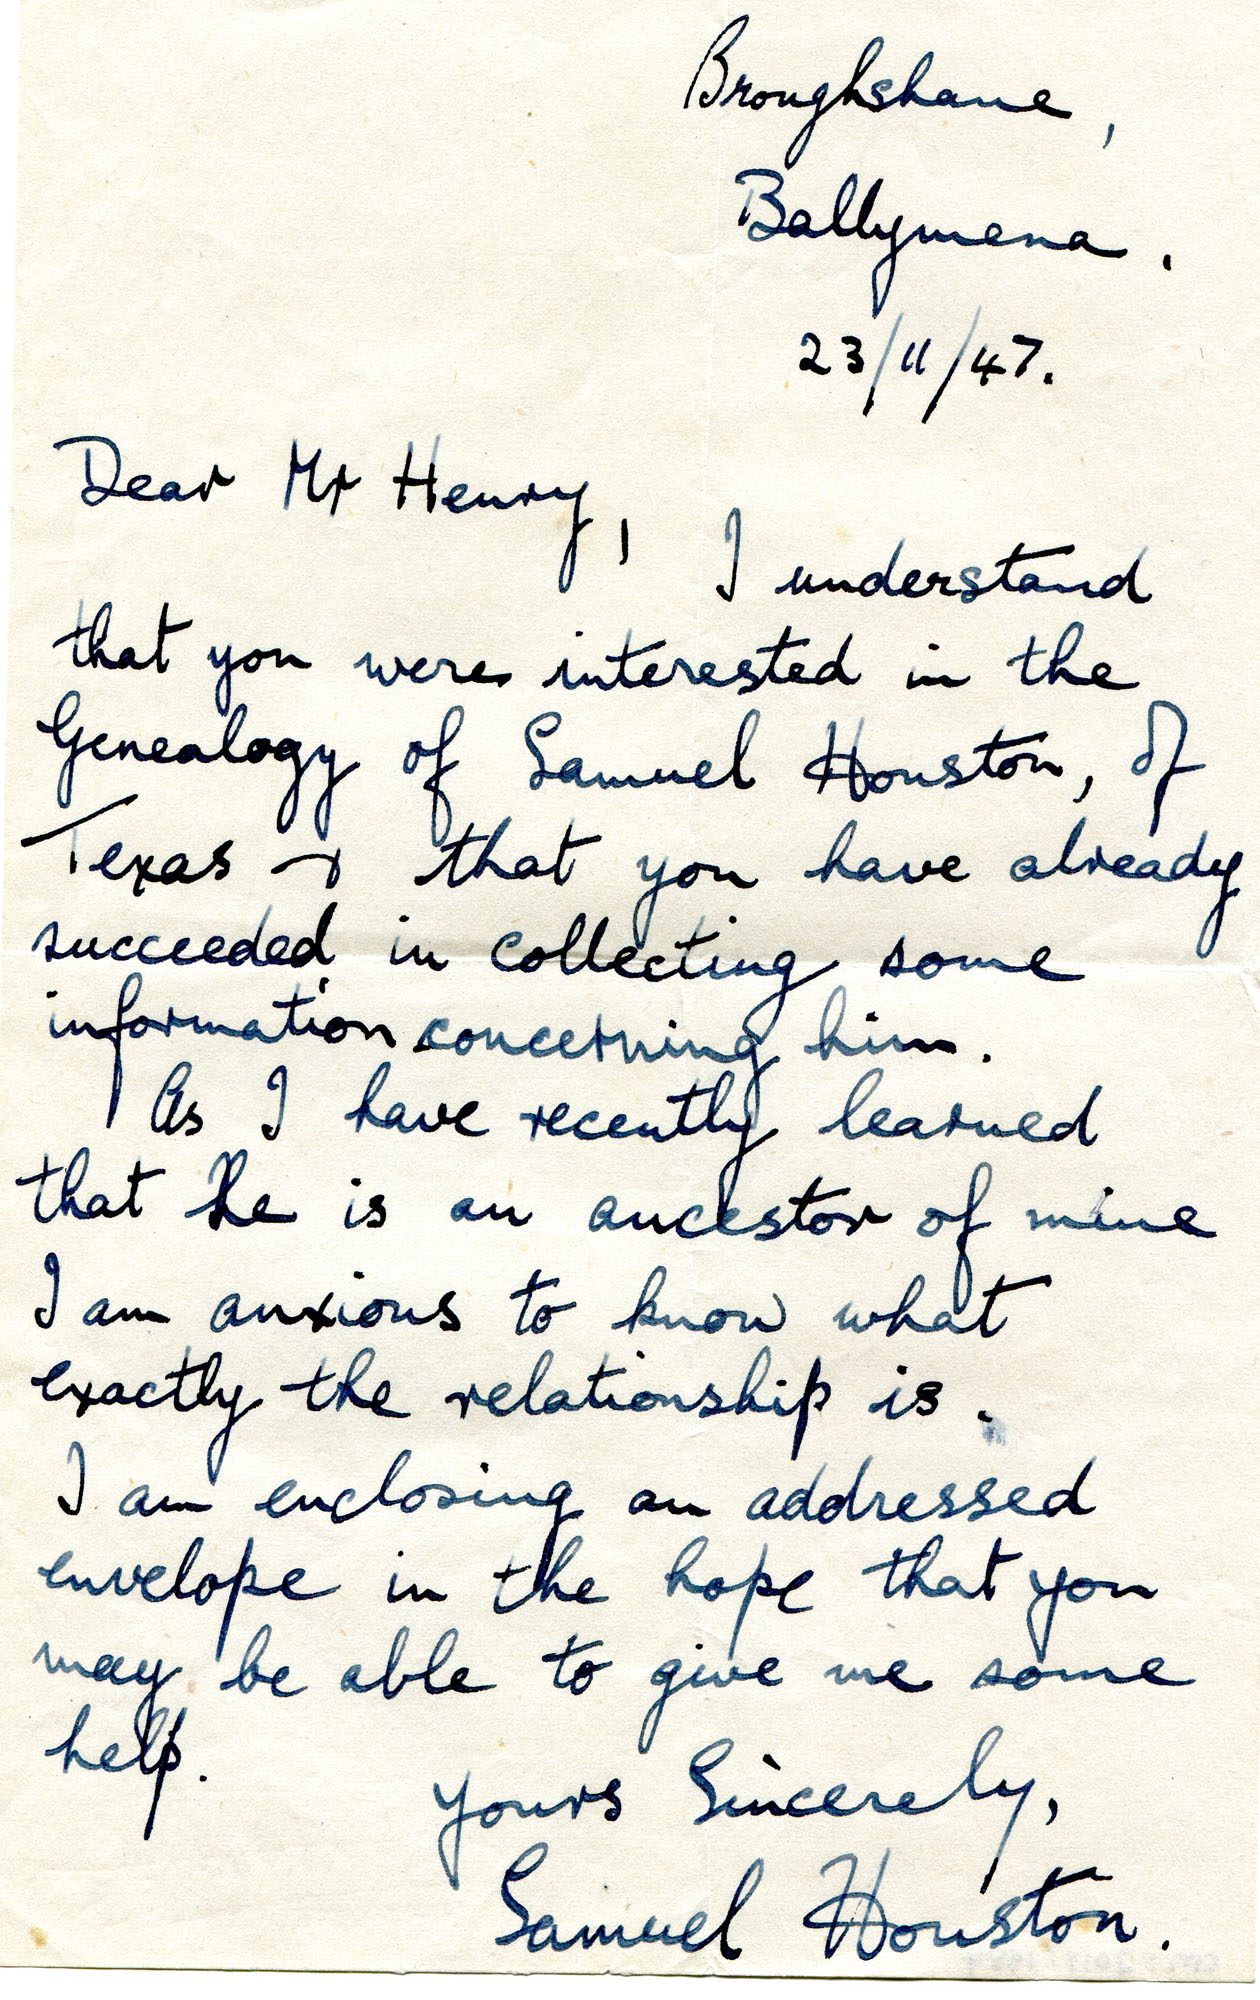 Broughshane,
Ballymena.
23/11/47.
Dear Mr Henry,
I understand
that you were interested in the
Genealogy of Samuel Houston, of
Texas & that you have already
succeeded in collecting some
information concerning him.
As I have recently learned
that he is an ancestor of mine
I am anxious to know what
exactly the relationship is.
I am enclosing an addressed
envelope in the hope that you
may be able to give me some
help.
Yours Sincerely,
Samuel Houston.